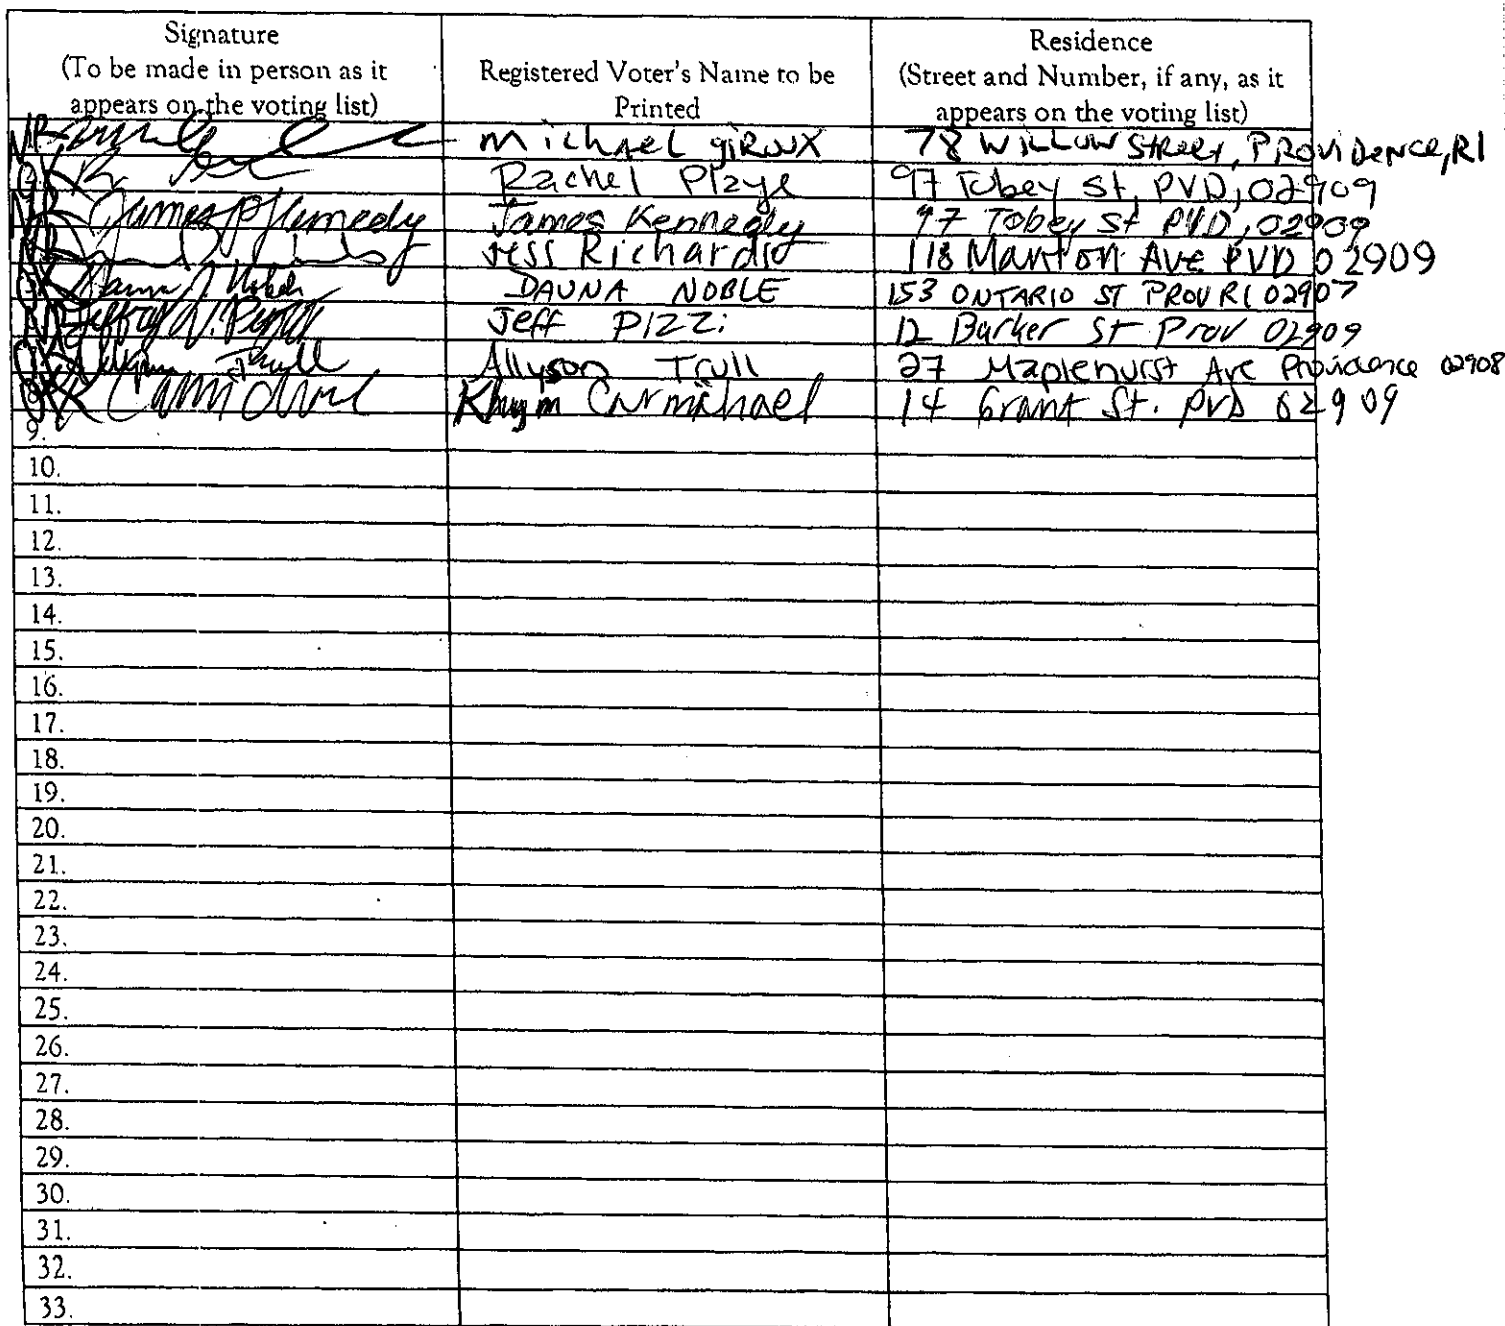 Signature
(To be made in person as it
appears on the voting list)
Registered Voter's Name to be
Printed
Residence
(Street and Number, if any, as it
appears on the voting list)
Michael giroux 78 Willow Street, Providence, RI
Rachel Playe 97 Tobey St, PVD, 02909
James P Kennedy James Kennedy 97 Tobey St PVD, 02909
Jess Richardson 118 Manton Ave PVD 02909
DAUNA NOBLE 153 ONTARIO ST PROV RI 02907
Jeff Pizzi 12 Barker St Prov 02909
Allyson Trull Allyson Trull 27 Maplehurst Ave Providence 02908
Carmichael 14 Grant St. PVD 02909
9.
10.
11.
12.
13.
14.
15.
16.
17.
18.
19.
20.
21.
22.
23.
24.
25.
26.
27.
28.
29.
30.
31.
32.
33.